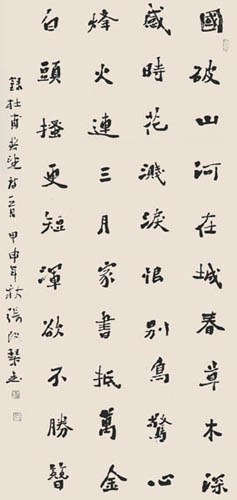 國破山河在城春草木深
感時花濺淚恨別鳥驚心
烽火連三月家書抵萬金
白頭搔更短渾欲不勝簪
錄杜甫春望詩一首甲申年秋張